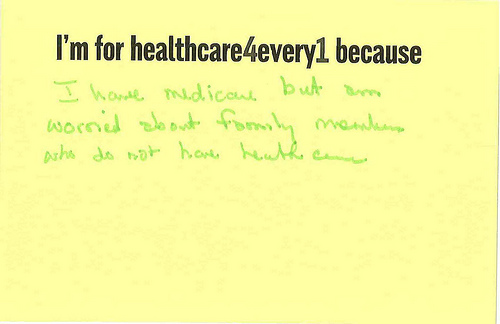 I'm for healthcare4every1 because
I have medicare but am
worried about family members
who do not have health care